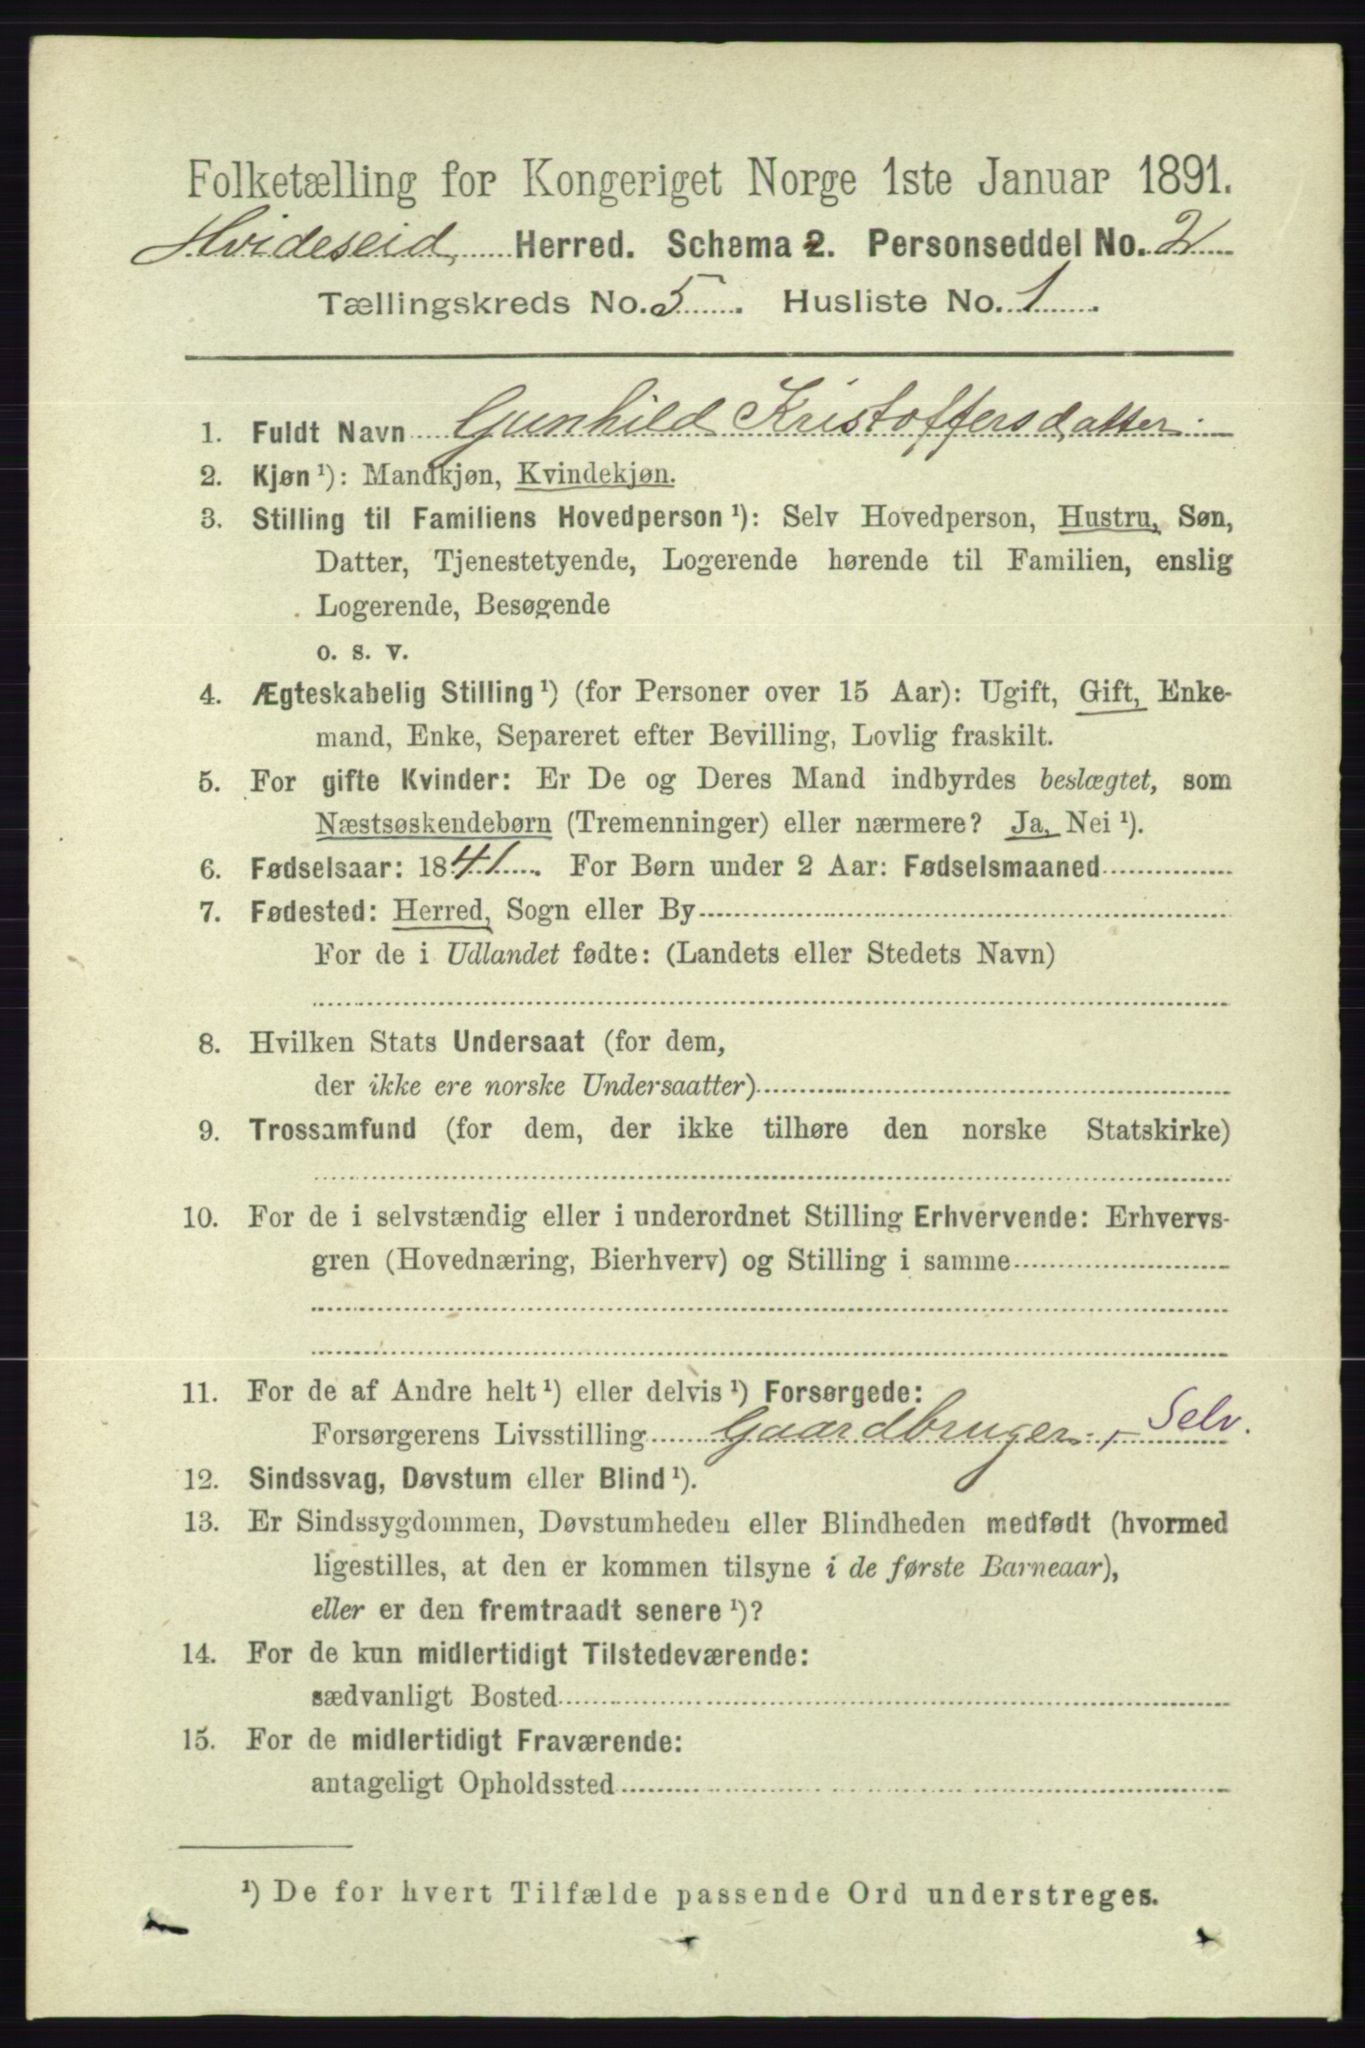 Folketælling for Kongeriget Norge 1ste Januar 1891.
Hvideseid Herred. Schema 2. Personseddel No. 2
Tællingskreds No. 5. Husliste No. 1.
1. Fuldt Navn Gunhild Kristoffersdatter
2. Kjøn ¹): Mandkjøn, Kvindekjøn.
3. Stilling til Familiens Hovedperson ¹): Selv Hovedperson, Hustru, Søn,
Datter, Tjenestetyende, Logerende hørende til Familien, enslig
Logerende, Besøgende
o. s. v.
4. Ægteskabelig Stilling ¹) (for Personer over 15 Aar): Ugift, Gift, Enke-
mand, Enke, Separeret efter Bevilling, Lovlig fraskilt.
5. For gifte Kvinder: Er De og Deres Mand indbyrdes beslægtet, som
Næstsøskendebørn (Tremenninger) eller nærmere? Ja, Nei ¹).
6. Fødselsaar: 1841. For Børn under 2 Aar: Fødselsmaaned
7. Fødested: Herred, Sogn eller By
For de i Udlandet fødte: (Landets eller Stedets Navn)
8. Hvilken Stats Undersaat (for dem,
der ikke ere norske Undersaatter)
9. Trossamfund (for dem, der ikke tilhøre den norske Statskirke)
10. For de i selvstændig eller i underordnet Stilling Erhvervende: Erhvervs-
gren (Hovednæring, Bierhverv) og Stilling i samme
11. For de af Andre helt ¹) eller delvis ¹) Forsørgede:
Forsørgerens Livsstilling Gaardbruger, Selv.
12. Sindssvag, Døvstum eller Blind ¹).
13. Er Sindssygdommen, Døvstumheden eller Blindheden medfødt (hvormed
ligestilles, at den er kommen tilsyne i de første Barneaar),
eller er den fremtraadt senere ¹)?
14. For de kun midlertidigt Tilstedeværende:
sædvanligt Bosted
15. For de midlertidigt Fraværende:
antageligt Opholdssted
¹) De for hvert Tilfælde passende Ord understreges.